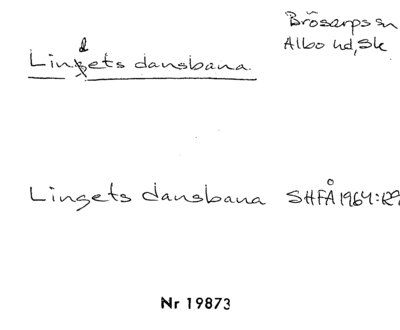 Brösarps sn
Albo hd, Sk
Lindets dansbana
Lingets dansbana SHFÅ 1964:129
Nr 19873